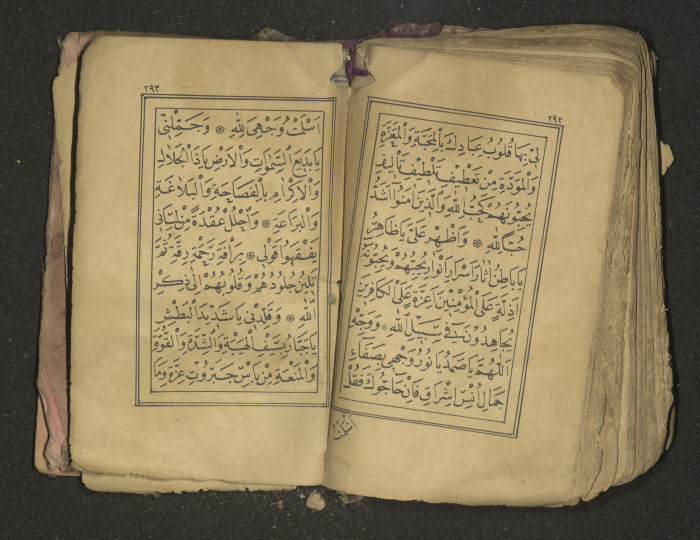 ٢٩٢
لى بها قلوب عبادك بالمحبة والمعزة
والمودة من تعطيف تلطيف تأليف
يحبونهم كحب الله والذين امنوا اشد
حبا لله ۞ واظهر على يا ظاهر
يا باطن اثار اسرار انوار يحبهم ويحبونه
اذلة على المؤمنين اعزة على الكافرين
يجاهدون في سبيل الله ۞ ووجه
اللهم يا صمد يا نور وجهى بصفاء
جمال انس اشراق فان حاجوك فقل
اسلمت
٢٩٣
اسلمت وجهى لله ۞ وجملنى
يا بديع السموات والارض ياذا الجلال
والاكرام بالفصاحة والبلاغة
والبراعة ۞ واحلل عقدة من لسانى
يفقهوا قولى ۞ برأفة رحمة رقة ثم
تلين جلودهم وقلوبهم الى ذكر
الله ۞ وقلدنى يا شديد البطش
يا جبار بسيف الهيبة والشدة والقوة
والمنعة من بأس جبروت عزة وما